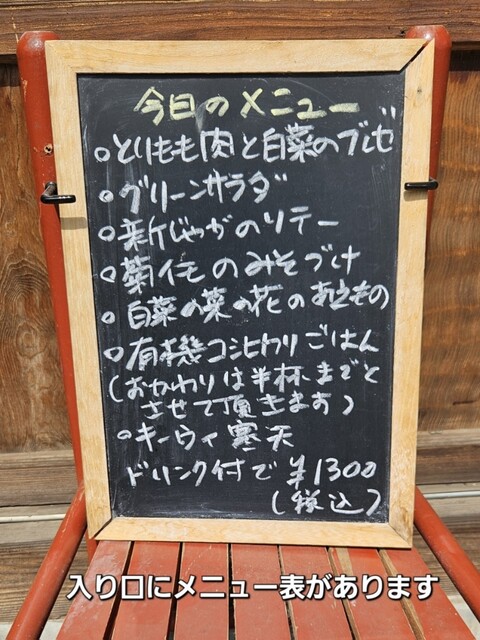 今日のメニュー
○とりもも肉と白菜のブレゼ
○グリーンサラダ
○新じゃがのソテー
○菊イモのみそづけ
○白菜の菜の花のあえもの
○有機コシヒカリごはん
(おかわりは半杯までと
させて頂きます)
○キーウィ寒天
ドリンク付で ¥1300
(税込)
入り口にメニュー表があります